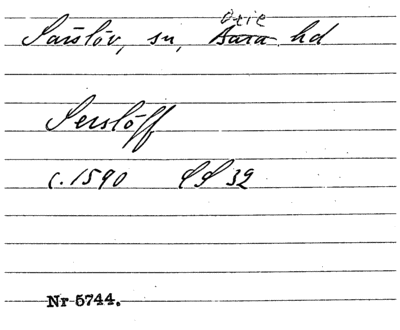 Särslöv, sn, Oxie hd
Serslöff
c. 1590 SS 32
Nr 5744.